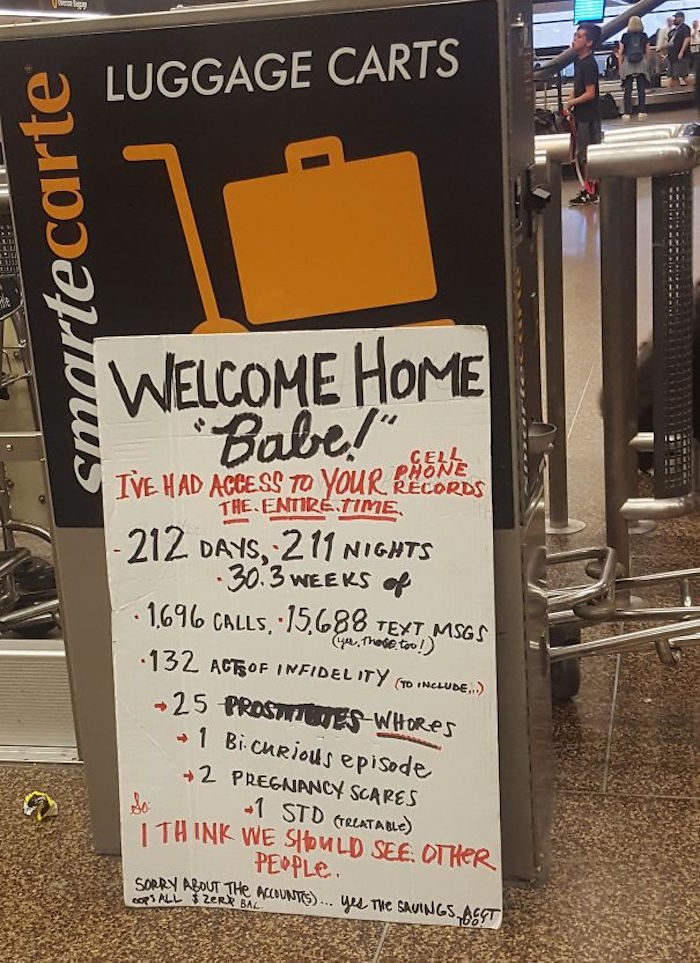 LUGGAGE CARTS
smartecarte
WELCOME HOME
"Babe!"
I'VE HAD ACCESS TO YOUR CELL PHONE RECORDS
THE ENTIRE TIME.
- 212 DAYS, · 211 NIGHTS
· 30.3 WEEKS of
· 1,696 CALLS, · 15,688 TEXT MSGS
(yes, those too!)
· 132 ACTS OF INFIDELITY (TO INCLUDE...)
→ 25 PROSTITUTES WHORES
→ 1 Bi-CURIOUS episode
→ 2 PREGNANCY SCARES
→ 1 STD (TREATABLE)
So:
I THINK WE SHOULD SEE OTHER
PEOPLE.
SORRY ABOUT THE ACCOUNT(S)... yes THE SAVINGS ACCT
OOPS ALL $ ZERO BAL. TOO!